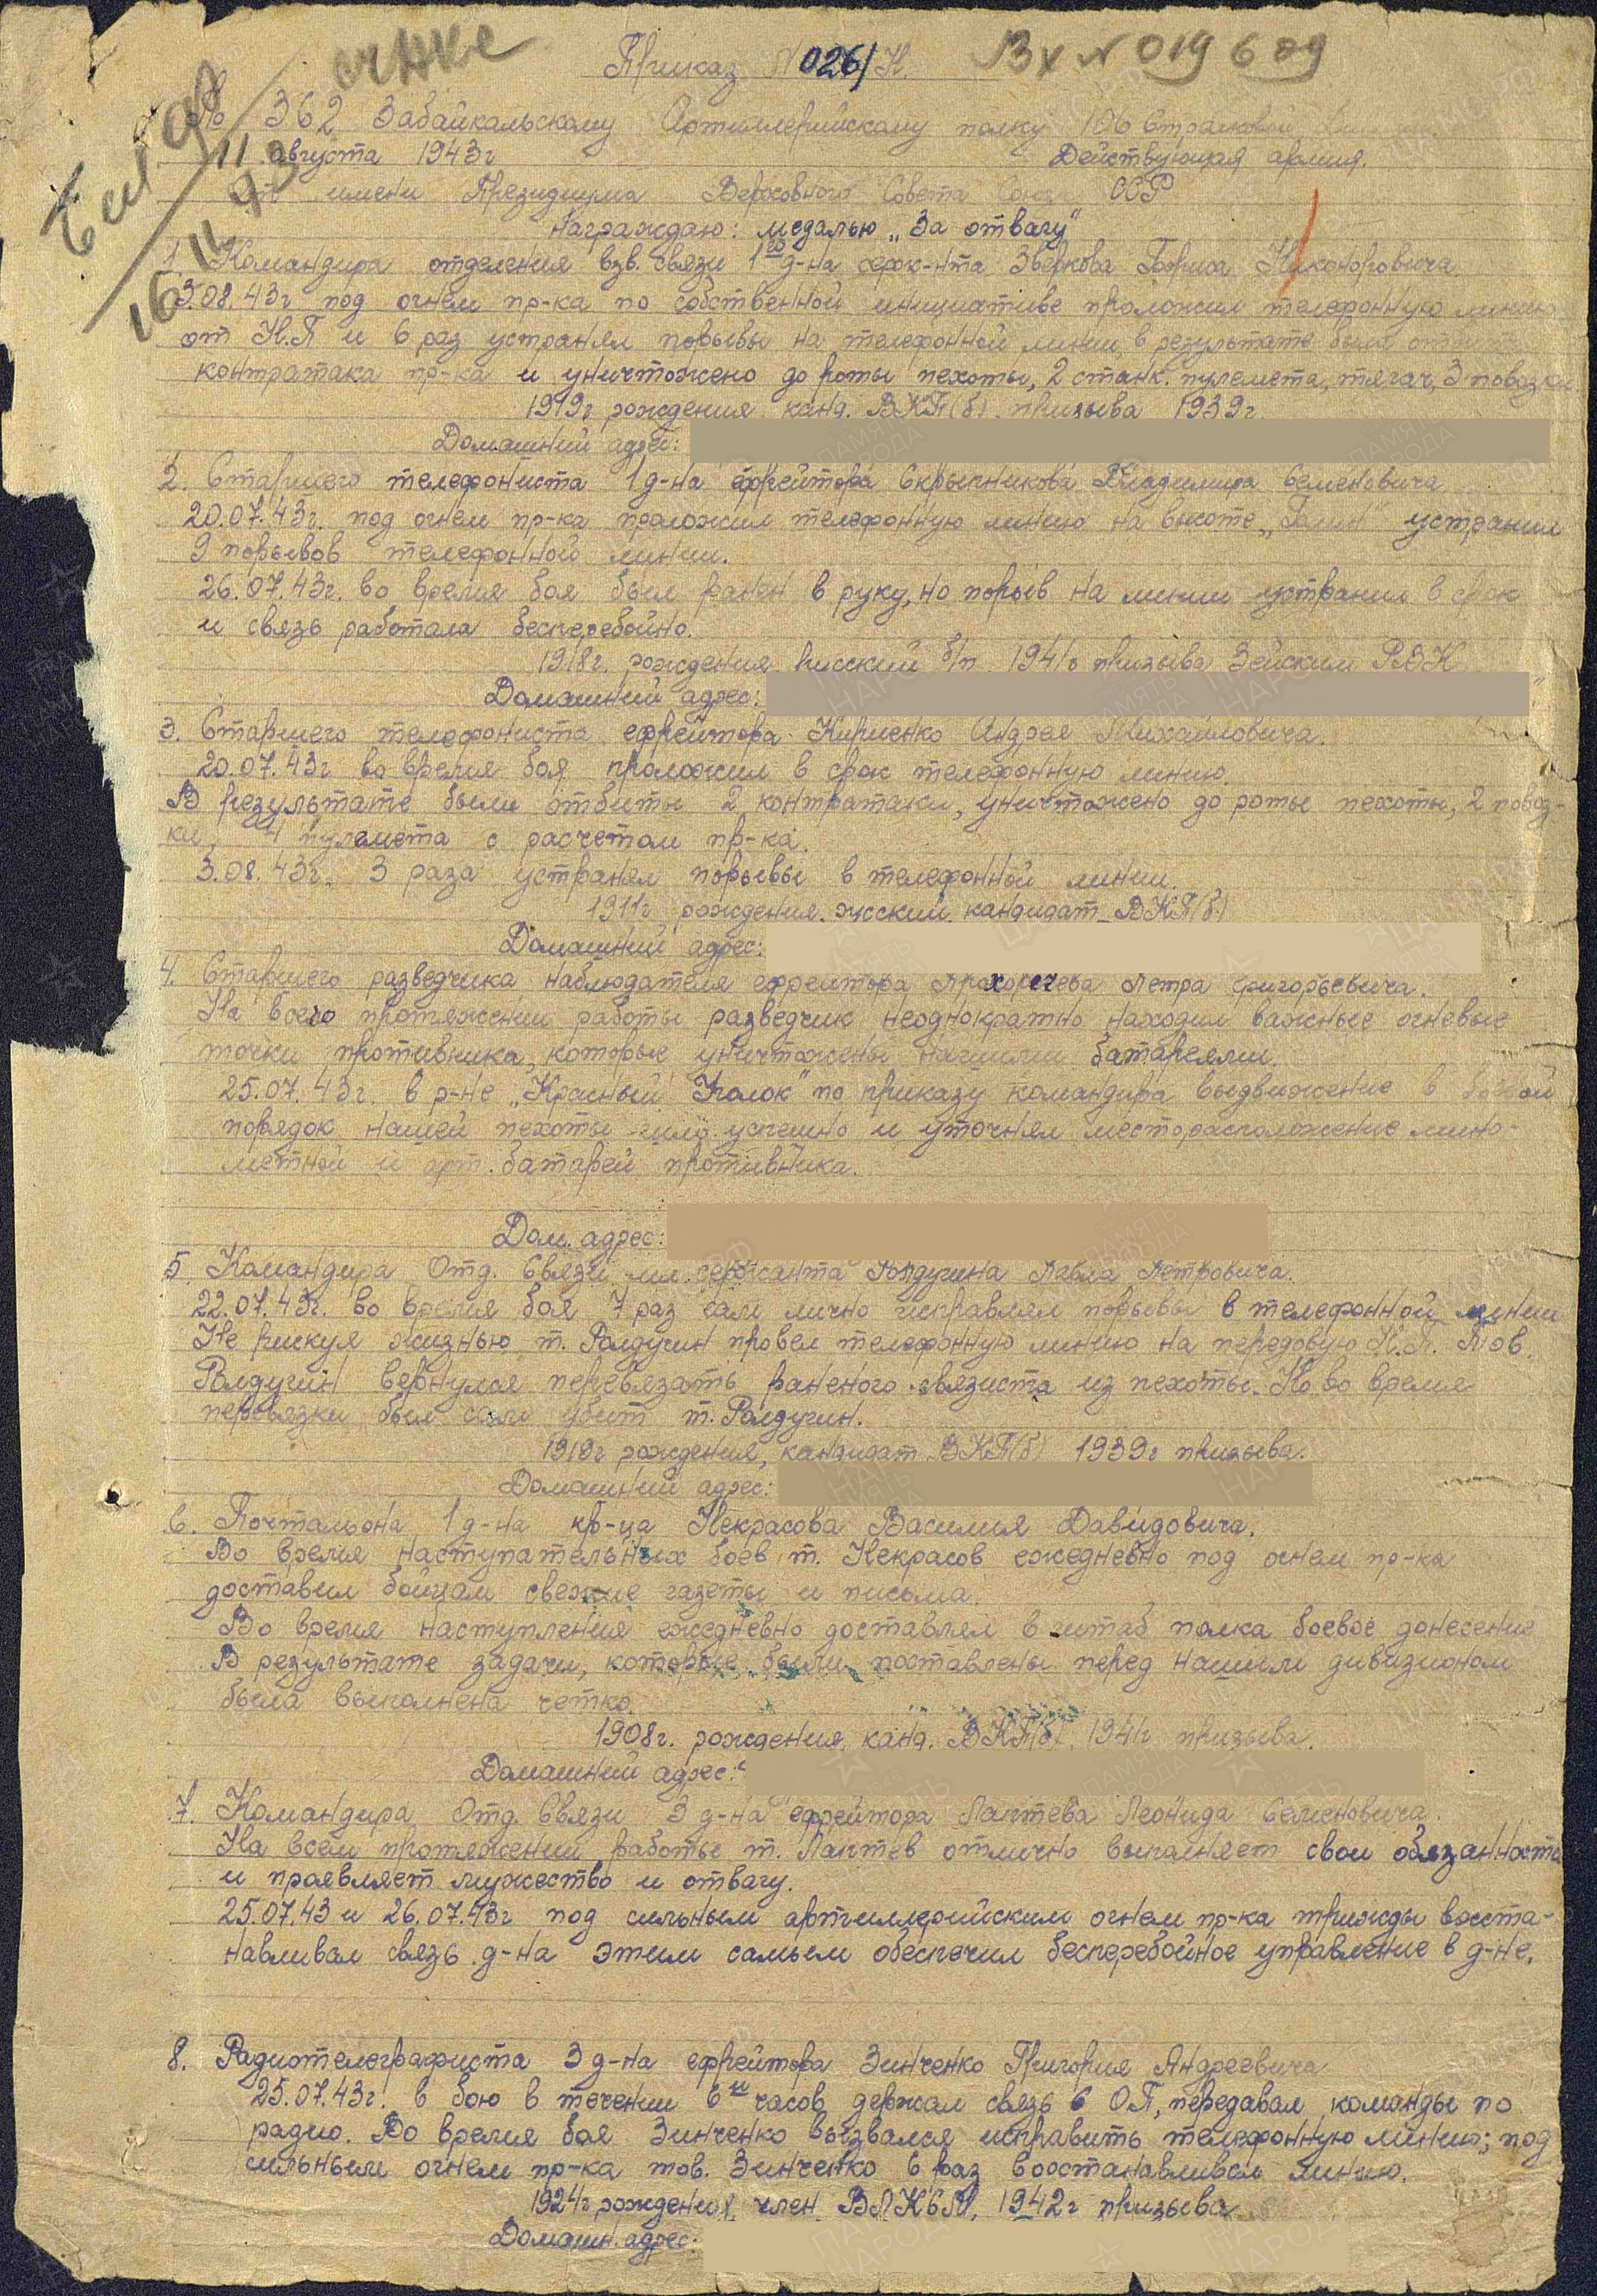 Вх N 019609
Приказ N 026/Н.
По 362 Забайкальскому Артиллерийскому полку 106 Стрелковой
11 августа 1943г Действующая армия.
От имени Президиума Верховного Совета Союза ССР
Награждаю: медалью „За отвагу"
1. Командира отделения взв. связи 1го д-на серж-нта Зверкова Бориса Никоноровича.
3.08.43г под огнем пр-ка по собственной инициативе проложил телефонную линию
от Н.П и 6 раз устранял порывы на телефонной линии, в результате была отбита
контратака пр-ка и уничтожено до роты пехоты, 2 станк. пулемета, тягач, 3 повозки.
1919г рождения. канд. ВКП(б). призыва 1939г.
Домашний адрес:
2. Старшего телефониста 1 д-на ефрейтора Скрыпникова Владимира Семеновича.
20.07.43г. под огнем пр-ка проложил телефонную линию на высоте устранил
9 порывов телефонной линии.
26.07.43г. во время боя был ранен в руку, но порыв на линии устранил в срок
и связь работала бесперебойно.
1918г. рождения, русский б/п. 1941г призыва Зейским РВК
Домашний адрес:
3. Старшего телефониста ефрейтора Кириенко Андрея Михайловича.
20.07.43г во время боя проложил в срок телефонную линию.
В результате были отбиты 2 контратаки, уничтожено до роты пехоты, 2 повоз-
ки, 4 пулемета с расчетом пр-ка.
3.08.43г. 3 раза устранял порывы в телефонной линии.
1911г рождения. русский, кандидат ВКП(б)
Домашний адрес:
4. Старшего разведчика наблюдателя ефрейтора Петра Григорьевича.
На всего протяжении работы разведчик неоднократно находил важные огневые
точки противника, которые уничтожены нашими батареями.
25.07.43г. в р-не „Красный Уголок" по приказу командира выдвижение в боевой
порядок нашей пехоты шло успешно и уточнял месторасположение мино-
метной и арт. батарей противника.
Дом. адрес:
5. Командира Отд. Связи мл. сержанта Ролдугина Павла Петровича.
22.07.43г. во время боя 7 раз сам лично исправлял порывы в телефонной линии
Не рискуя жизнью т. Ролдугин провел телефонную линию на передовую Н.П. Тов.
Ролдугин вернулся перевязать раненого связиста из пехоты. Но во время
перевязки был сам убит т. Ролдугин.
1919г рождения, кандидат ВКП(б) 1939г призыва.
Домашний адрес:
6. Почтальона 1 д-на кр-ца Некрасова Василия Давидовича.
Во время наступательных боев т. Некрасов ежедневно под огнем пр-ка
доставил бойцам свежие газеты и письма.
Во время наступления ежедневно доставлял в штаб полка боевое донесение
В результате задачи, которые были поставлены перед нашим дивизионом
была выполнена четко.
1908г. рождения, канд. ВКП(б), 1941г призыва.
Домашний адрес:
7. Командира Отд. Связи 3 д-на ефрейтора Лаптева Леонида Семеновича.
На всем протяжении работы т. Лаптев отлично выполняет свои обязанности
и проявляет мужество и отвагу.
25.07.43 и 26.07.43г под сильным артиллерийским огнем пр-ка трижды восста-
навливал связь д-на этим самым обеспечил бесперебойное управление в д-не.
8. Радиотелеграфиста 3 д-на ефрейтора Зинченко Григория Андреевича
25.07.43г. в бою в течении 6и часов держал связь с ОП, передавал команды по
радио. Во время боя Зинченко вызвался исправить телефонную линию; под
сильным огнем пр-ка тов. Зинченко 6 раз восстанавливал линию.
1924г рождения, член ВЛКСМ, 1942г призыва
Домашн. адрес: